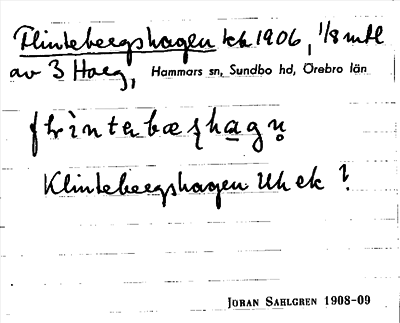 Flintebergshagen kh 1906, 1/8 mtl
av 3 Haeg, Hammars sn, Sundbo hd, Örebro län
Klintebergshagen Uh ek ?
JORAN SAHLGREN 1908-09